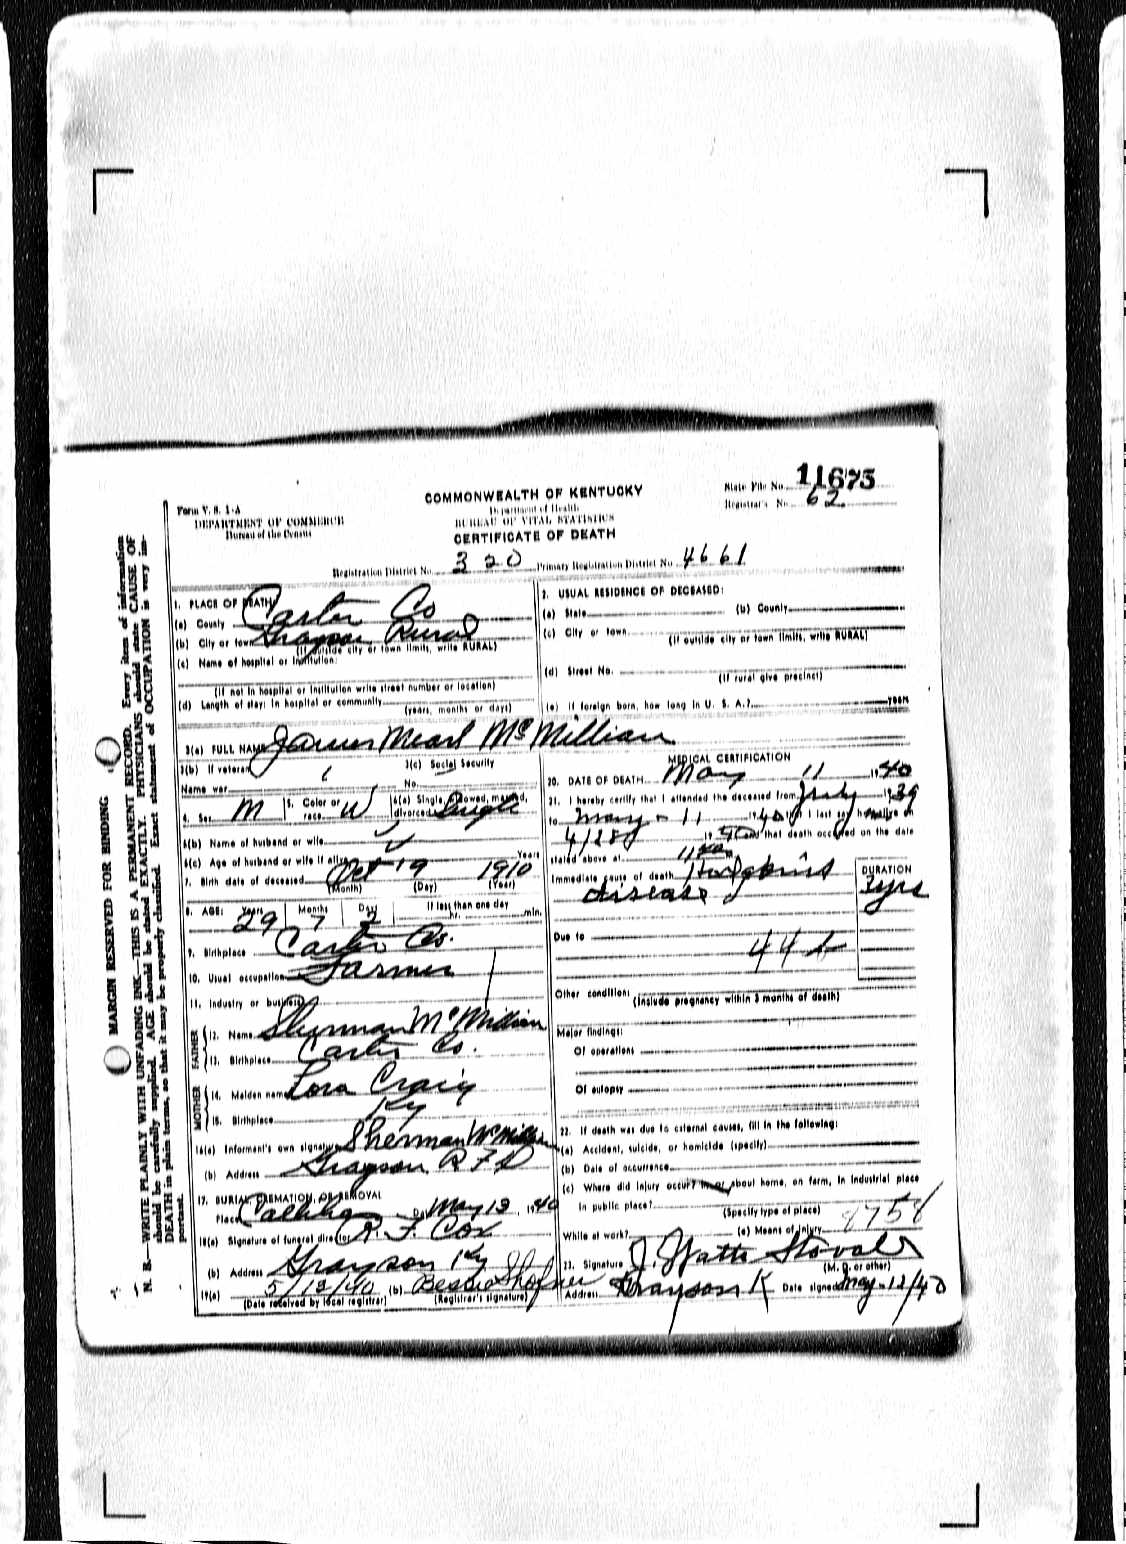 Form V. S. 1-A
DEPARTMENT OF COMMERCE
Bureau of the Census
COMMONWEALTH OF KENTUCKY
Department of Health
BUREAU OF VITAL STATISTICS
CERTIFICATE OF DEATH
State File No. 11675
Registrar's No. 62
Registration District No. 320 Primary Registration District No. 4661
MARGIN RESERVED FOR BINDING
N. B.—WRITE PLAINLY WITH UNFADING INK—THIS IS A PERMANENT RECORD. Every item of information
should be carefully supplied. AGE should be stated EXACTLY. PHYSICIANS should state CAUSE OF
DEATH in plain terms, so that it may be properly classified. Exact statement of OCCUPATION is very im-
portant.
1. PLACE OF DEATH
(a) County Carter Co
(b) City or town Grayson Rural
(If outside city or town limits, write RURAL)
(c) Name of hospital or institution:
(If not in hospital or institution write street number or location)
(d) Length of stay: In hospital or community
(years, months or days)
2. USUAL RESIDENCE OF DECEASED:
(a) State (b) County
(c) City or town
(If outside city or town limits, write RURAL)
(d) Street No.
(If rural give precinct)
(e) If foreign born, how long in U. S. A.? years
3(a) FULL NAME James Mearl McMillian
3(b) If veteran 3(c) Social Security
Name war No.
4. Sex M 5. Color or race W 6(a) Single, widowed, married, divorced Single
6(b) Name of husband or wife
6(c) Age of husband or wife if alive Years
7. Birth date of deceased Oct 19 1910
(Month) (Day) (Year)
8. AGE: Years Months Days If less than one day
29 7 2 hr. min.
9. Birthplace Carter Co.
10. Usual occupation Farmer
11. Industry or business
FATHER
12. Name Sherman McMillian
13. Birthplace Carter Co.
MOTHER
14. Maiden name Lora Craig
15. Birthplace Ky
16(a) Informant's own signature Sherman McMillian
(b) Address Grayson R F D
17. BURIAL, CREMATION, OR REMOVAL
Place Date May 13, 1940
18(a) Signature of funeral director R. F. Cox
(b) Address Grayson Ky
19(a) 5/13/40 (b) Bessie Shofner
(Date received by local registrar) (Registrar's signature)
MEDICAL CERTIFICATION
20. DATE OF DEATH May 11 1940
21. I hereby certify that I attended the deceased from July 1939
to May - 11 1940 that I last saw h alive on
4/28 1940 and that death occurred on the date
stated above at 11
Immediate cause of death Hodgkins
disease
DURATION
Due to
44
Other conditions
(Include pregnancy within 3 months of death)
Major findings:
Of operations
Of autopsy
22. If death was due to external causes, fill in the following:
(a) Accident, suicide, or homicide (specify)
(b) Date of occurrence
(c) Where did injury occur? In or about home, on farm, in industrial place
in public place?
(Specify type of place)
While at work? (e) Means of injury
23. Signature J. Watts Stovall
(M. D. or other)
Address Grayson K Date signed May-12/40